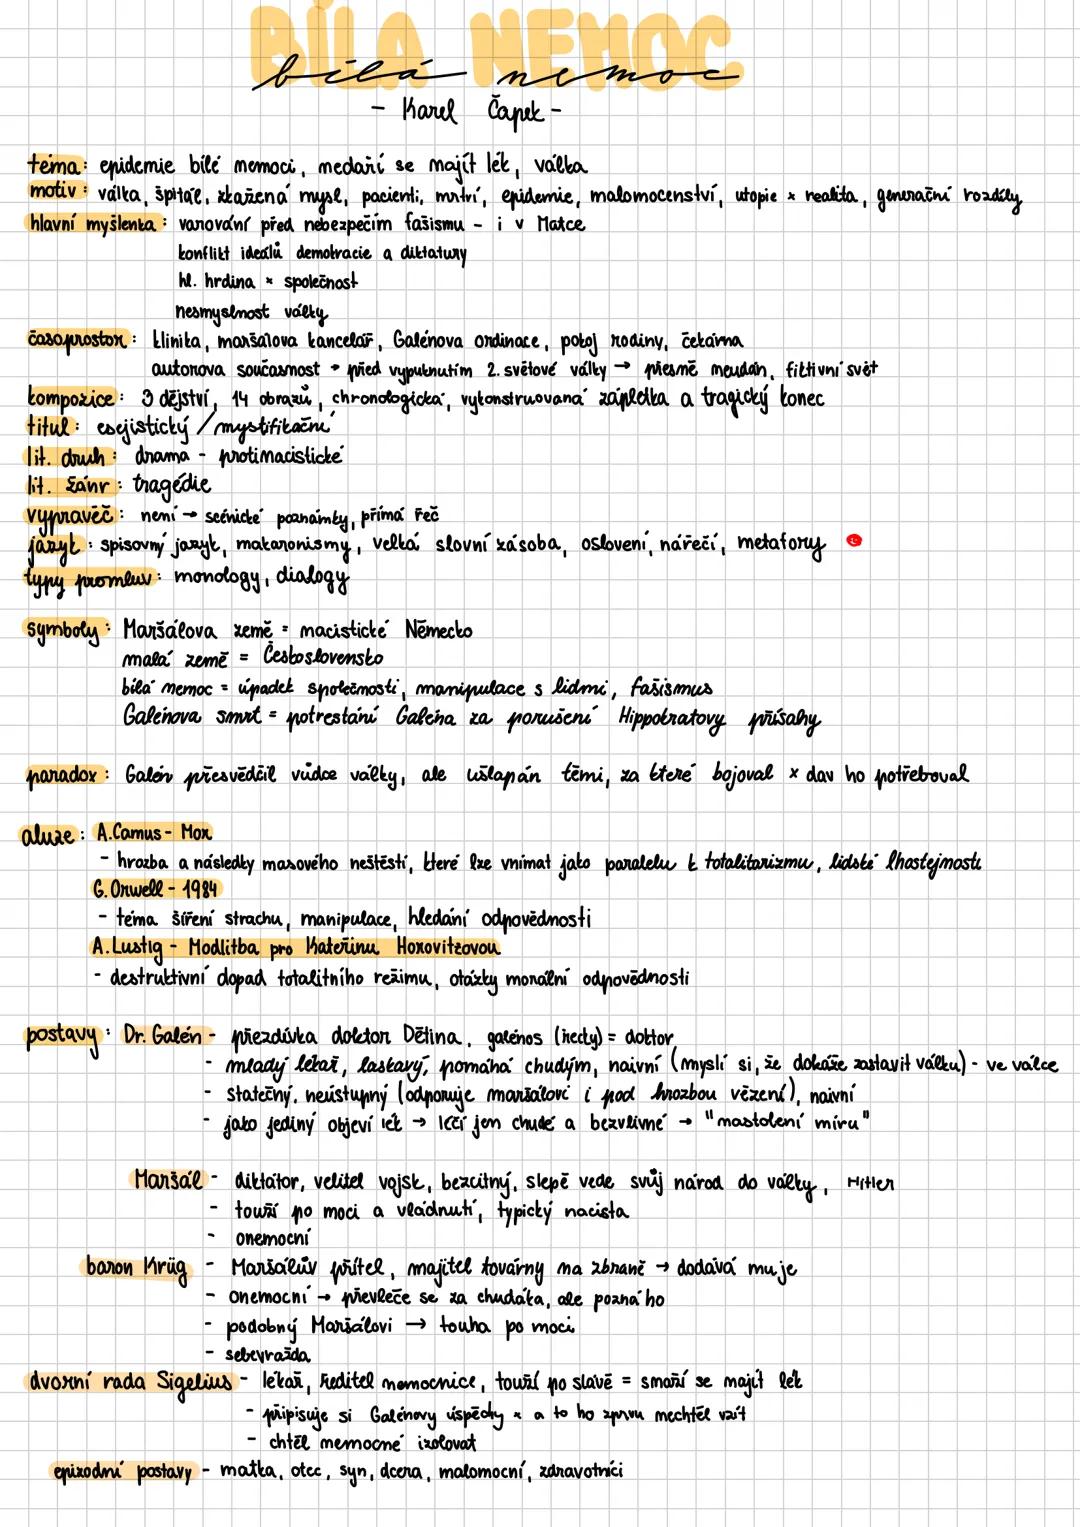 BÍLÁ NEMOC
bílá nemoc
- Karel Čapek -
téma: epidemie bílé nemoci, nedaří se najít lék, válka
motiv: válka, špitál, zkažená mysl, pacienti, mrtví, epidemie, malomocenství, utopie x realita, generační rozdíly
hlavní myšlenka: varování před nebezpečím fašismu - i v Matce
konflikt ideálů demokracie a diktatury
hl. hrdina x společnost
nesmyslnost války
časoprostor: klinika, maršálova kancelář, Galénova ordinace, pokoj rodiny, čekárna
autorova současnost • před vypuknutím 2. světové války → přesně neudán, fiktivní svět
kompozice: 3 dějství, 14 obrazů, chronologická, vykonstruovaná zápletka a tragický konec
titul: esejistický / mystifikační
lit. druh: drama - protinacistické
lit. žánr: tragédie
vypravěč: není → scénické poznámky, přímá řeč
jazyk: spisovný jazyk, makaronismy, velká slovní zásoba, oslovení, nářečí, metafory
typy promluv: monology, dialogy
symboly: Maršálova země = nacistické Německo
malá země = Československo
bílá nemoc = úpadek společnosti, manipulace s lidmi, fašismus
Galénova smrt = potrestání Galéna za porušení Hippokratovy přísahy
paradox: Galén přesvědčil vůdce války, ale ušlapán těmi, za které bojoval x dav ho potřeboval
aluze: A.Camus - Mor
- hrozba a následky masového neštěstí, které lze vnímat jako paralelu k totalitarizmu, lidské lhostejnosti
G.Orwell - 1984
- téma šíření strachu, manipulace, hledání odpovědnosti
A.Lustig - Modlitba pro Kateřinu Horovitzovou
- destruktivní dopad totalitního režimu, otázky morální odpovědnosti
postavy: Dr. Galén - přezdívka doktor Dětina, galénos (řecky) = doktor
- mladý lékař, laskavý, pomáhá chudým, naivní (myslí si, že dokáže zastavit válku) - ve válce
- statečný, neústupný (odporuje maršálovi i pod hrozbou vězení), naivní
- jako jediný objeví lék → léčí jen chudé a bezvlivné → "nastolení míru"
Maršál - diktátor, velitel vojsk, bezcitný, slepě vede svůj národ do války, Hitler
- touží po moci a vládnutí, typický nacista
- onemocní
baron Krüg - Maršálův přítel, majitel továrny na zbraně → dodává mu je
- onemocní → převleče se za chudáka, ale pozná ho
- podobný Maršálovi → touha po moci
- sebevražda
dvorní rada Sigelius - lékař, ředitel nemocnice, touží po slávě = snaží se najít lék
- připisuje si Galénovy úspěchy x a to ho zprvu nechtěl vzít
- chtěl nemocné izolovat
epizodní postavy - matka, otec, syn, dcera, malomocní, zdravotníci